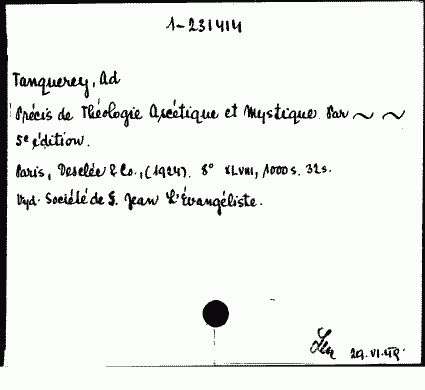 1-231414
Tanquerey, Ad
Précis de Théologie Ascétique et Mystique. Par ~ ~
5e édition.
Paris, Desclée & Co., (1924). 8° XLVIII, 1000 s. 32 s.
Vyd. Société de S. Jean L'Évangéliste.
29.VI.49.